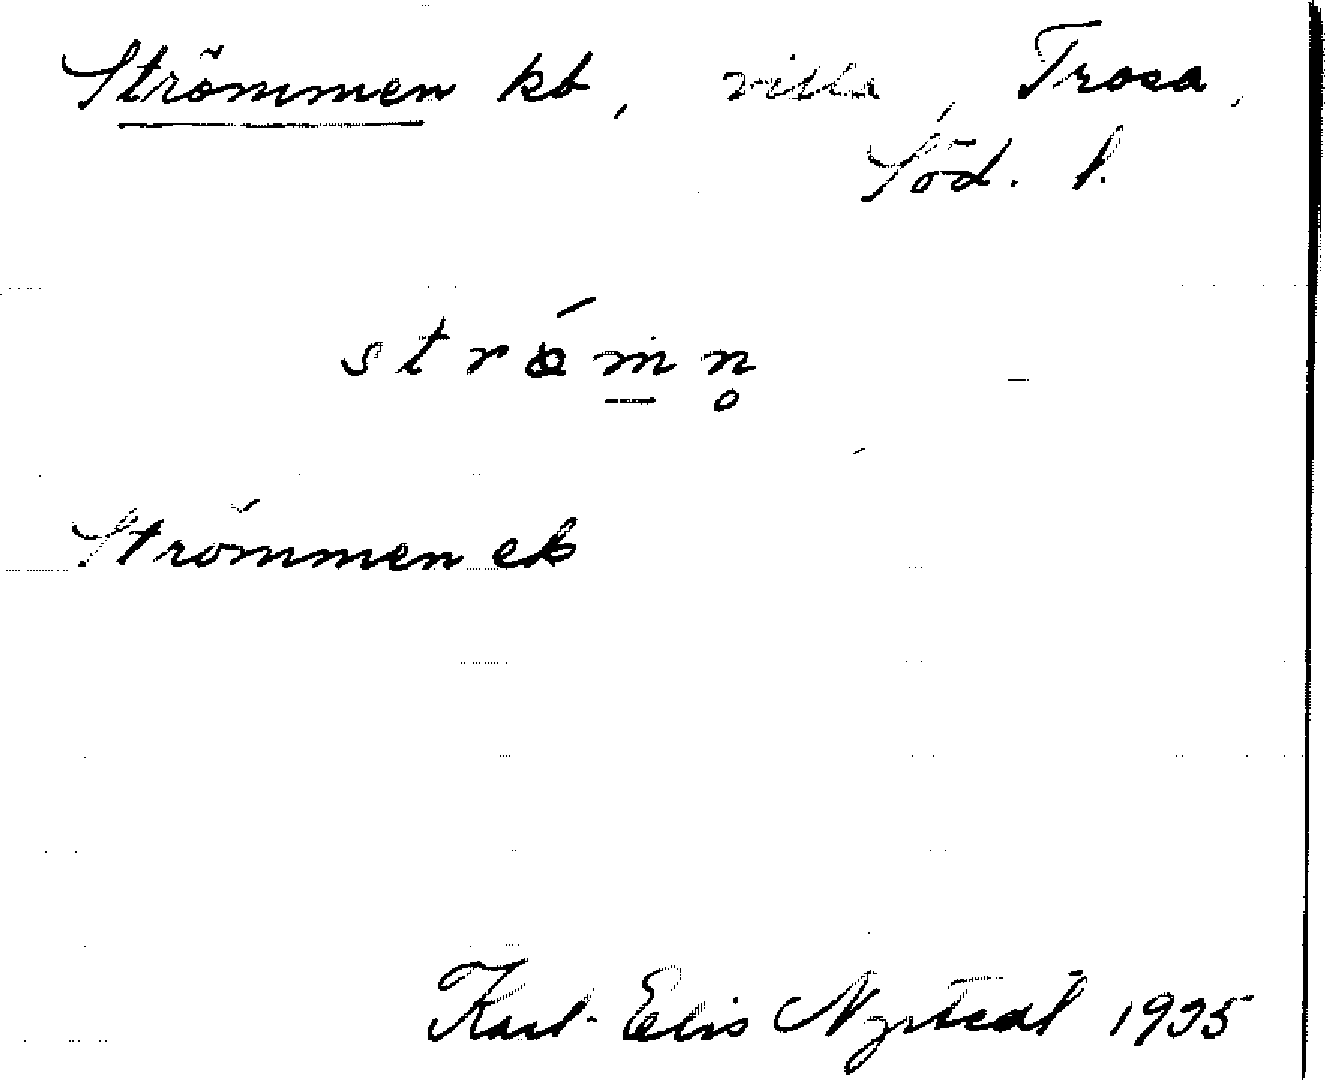 Strömmen kb, villa, Trosa,
Söd. l.
strömn̥
Strömmen ek
Karl-Elis Nystedt 1935